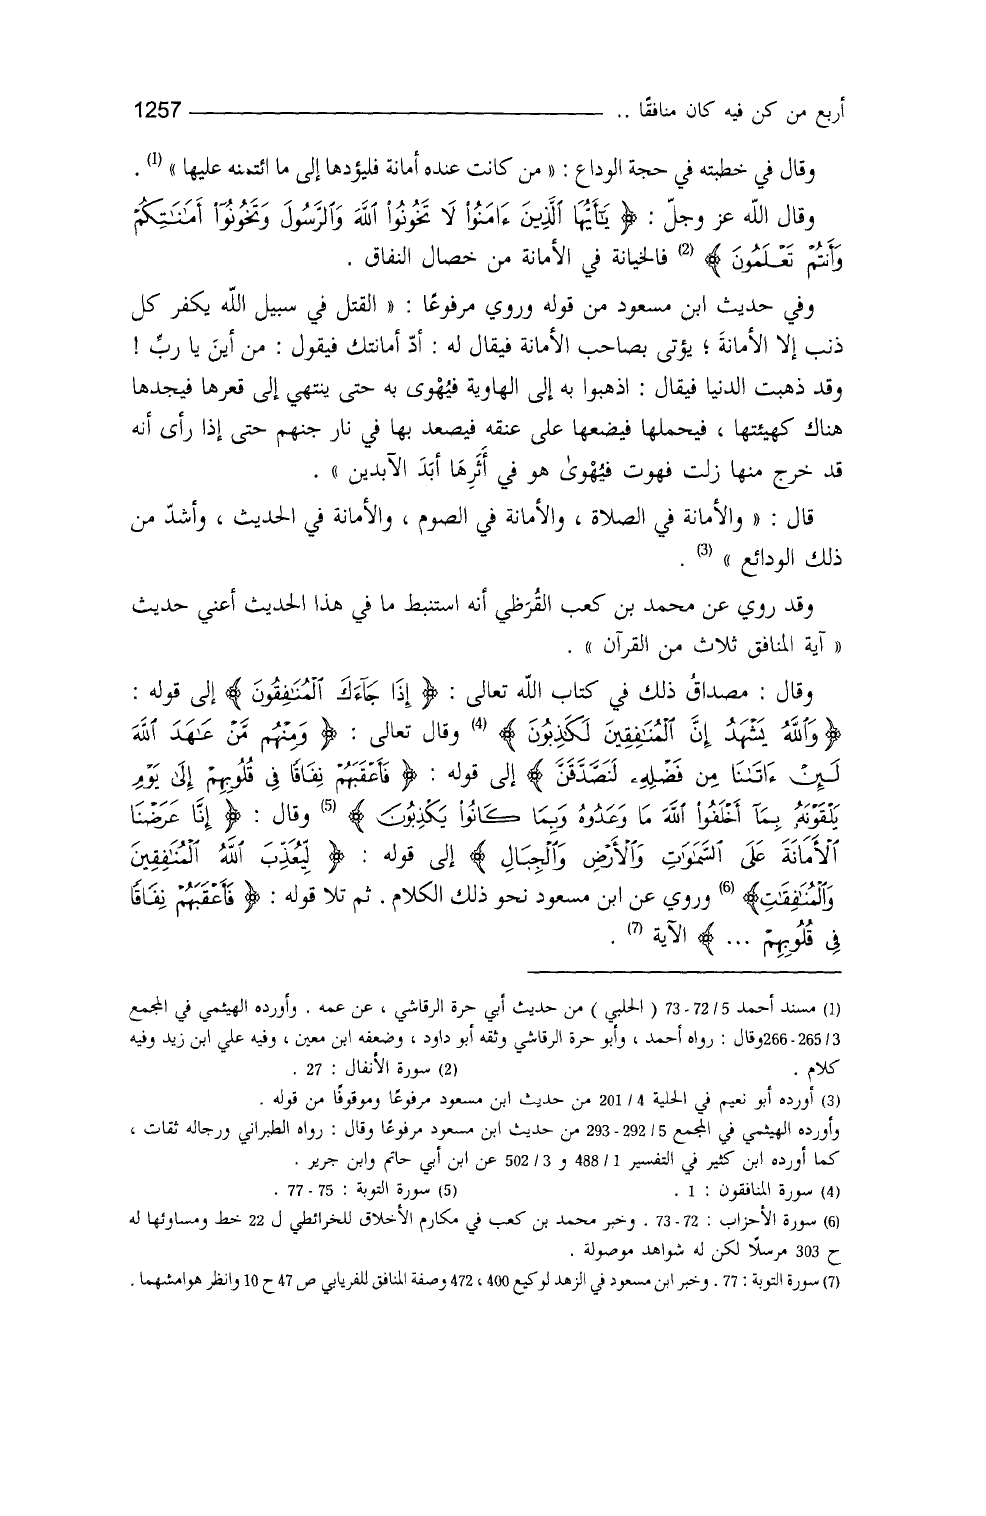 أربع من كن فيه كان منافقًا .. 1257
وقال في خطبته في حجة الوداع : « من كانت عنده أمانة فليؤدها إلى ما ائتمنه عليها » (1) .
وقال اللّه عز وجلّ : ﴿ يَٰٓأَيُّهَا ٱلَّذِينَ ءَامَنُوا۟ لَا تَخُونُوا۟ ٱللَّهَ وَٱلرَّسُولَ وَتَخُونُوٓا۟ أَمَٰنَٰتِكُمْ
وَأَنتُمْ تَعْلَمُونَ ﴾ (2) فالخيانة في الأمانة من خصال النفاق .
وفي حديث ابن مسعود من قوله وروي مرفوعًا : « القتل في سبيل اللّه يكفر كل
ذنب إلا الأمانةَ ؛ يؤتى بصاحب الأمانة فيقال له : أدّ أمانتك فيقول : من أينَ يا ربِّ !
وقد ذهبت الدنيا فيقال : اذهبوا به إلى الهاوية فيُهْوى به حتى ينتهي إلى قعرها فيجدها
هناك كهيئتها ، فيحملها فيضعها على عنقه فيصعد بها في نار جنهم حتى إذا رأى أنه
قد خرج منها زلت فهوت فيُهْوىٰ هو في أَثَرِهَا أبَدَ الآبدين » .
قال : « والأمانة في الصلاة ، والأمانة في الصوم ، والأمانة في الحديث ، وأشدّ من
ذلك الودائع » (3) .
وقد روي عن محمد بن كعب القُرَظي أنه استنبط ما في هذا الحديث أعني حديث
« آية المنافق ثلاث من القرآن » .
وقال : مصداقُ ذلك في كتاب اللّه تعالى : ﴿ إِذَا جَآءَكَ ٱلْمُنَٰفِقُونَ ﴾ إلى قوله :
﴿ وَٱللَّهُ يَشْهَدُ إِنَّ ٱلْمُنَٰفِقِينَ لَكَٰذِبُونَ ﴾ (4) وقال تعالى : ﴿ وَمِنْهُم مَّنْ عَٰهَدَ ٱللَّهَ
لَئِنْ ءَاتَىٰنَا مِن فَضْلِهِۦ لَنَصَّدَّقَنَّ ﴾ إلى قوله : ﴿ فَأَعْقَبَهُمْ نِفَاقًا فِى قُلُوبِهِمْ إِلَىٰ يَوْمِ
يَلْقَوْنَهُۥ بِمَآ أَخْلَفُوا۟ ٱللَّهَ مَا وَعَدُوهُ وَبِمَا كَانُوا۟ يَكْذِبُونَ ﴾ (5) وقال : ﴿ إِنَّا عَرَضْنَا
ٱلْأَمَانَةَ عَلَى ٱلسَّمَٰوَٰتِ وَٱلْأَرْضِ وَٱلْجِبَالِ ﴾ إلى قوله : ﴿ لِّيُعَذِّبَ ٱللَّهُ ٱلْمُنَٰفِقِينَ
وَٱلْمُنَٰفِقَٰتِ﴾ (6) وروي عن ابن مسعود نحو ذلك الكلام . ثم تلا قوله : ﴿ فَأَعْقَبَهُمْ نِفَاقًا
فِى قُلُوبِهِمْ ... ﴾ الآية (7) .
(1) مسند أحمد 5/ 72 - 73 ( الحلبي ) من حديث أبي حرة الرقاشي ، عن عمه . وأورده الهيثمي في المجمع
3/ 265 - 266وقال : رواه أحمد ، وأبو حرة الرقاشي وثقه أبو داود ، وضعفه ابن معين ، وفيه علي ابن زيد وفيه
كلام . (2) سورة الأنفال : 27 .
(3) أورده أبو نعيم في الحلية 4 / 201 من حديث ابن مسعود مرفوعًا وموقوفًا من قوله .
وأورده الهيثمي في المجمع 5/ 292 - 293 من حديث ابن مسعود مرفوعًا وقال : رواه الطبراني ورجاله ثقات ،
كما أورده ابن كثير في التفسير 1 / 488 و 3 / 502 عن ابن أبي حاتم وابن جرير .
(4) سورة المنافقون : 1 . (5) سورة التوبة : 75 - 77 .
(6) سورة الأحزاب : 72 - 73 . وخبر محمد بن كعب في مكارم الأخلاق للخرائطي ل 22 خط ومساوئها له
ح 303 مرسلًا لكن له شواهد موصولة .
(7) سورة التوبة : 77 . وخبر ابن مسعود في الزهد لوكيع 400 ، 472 وصفة المنافق للفريابي ص 47 ح 10 وانظر هوامشهما .